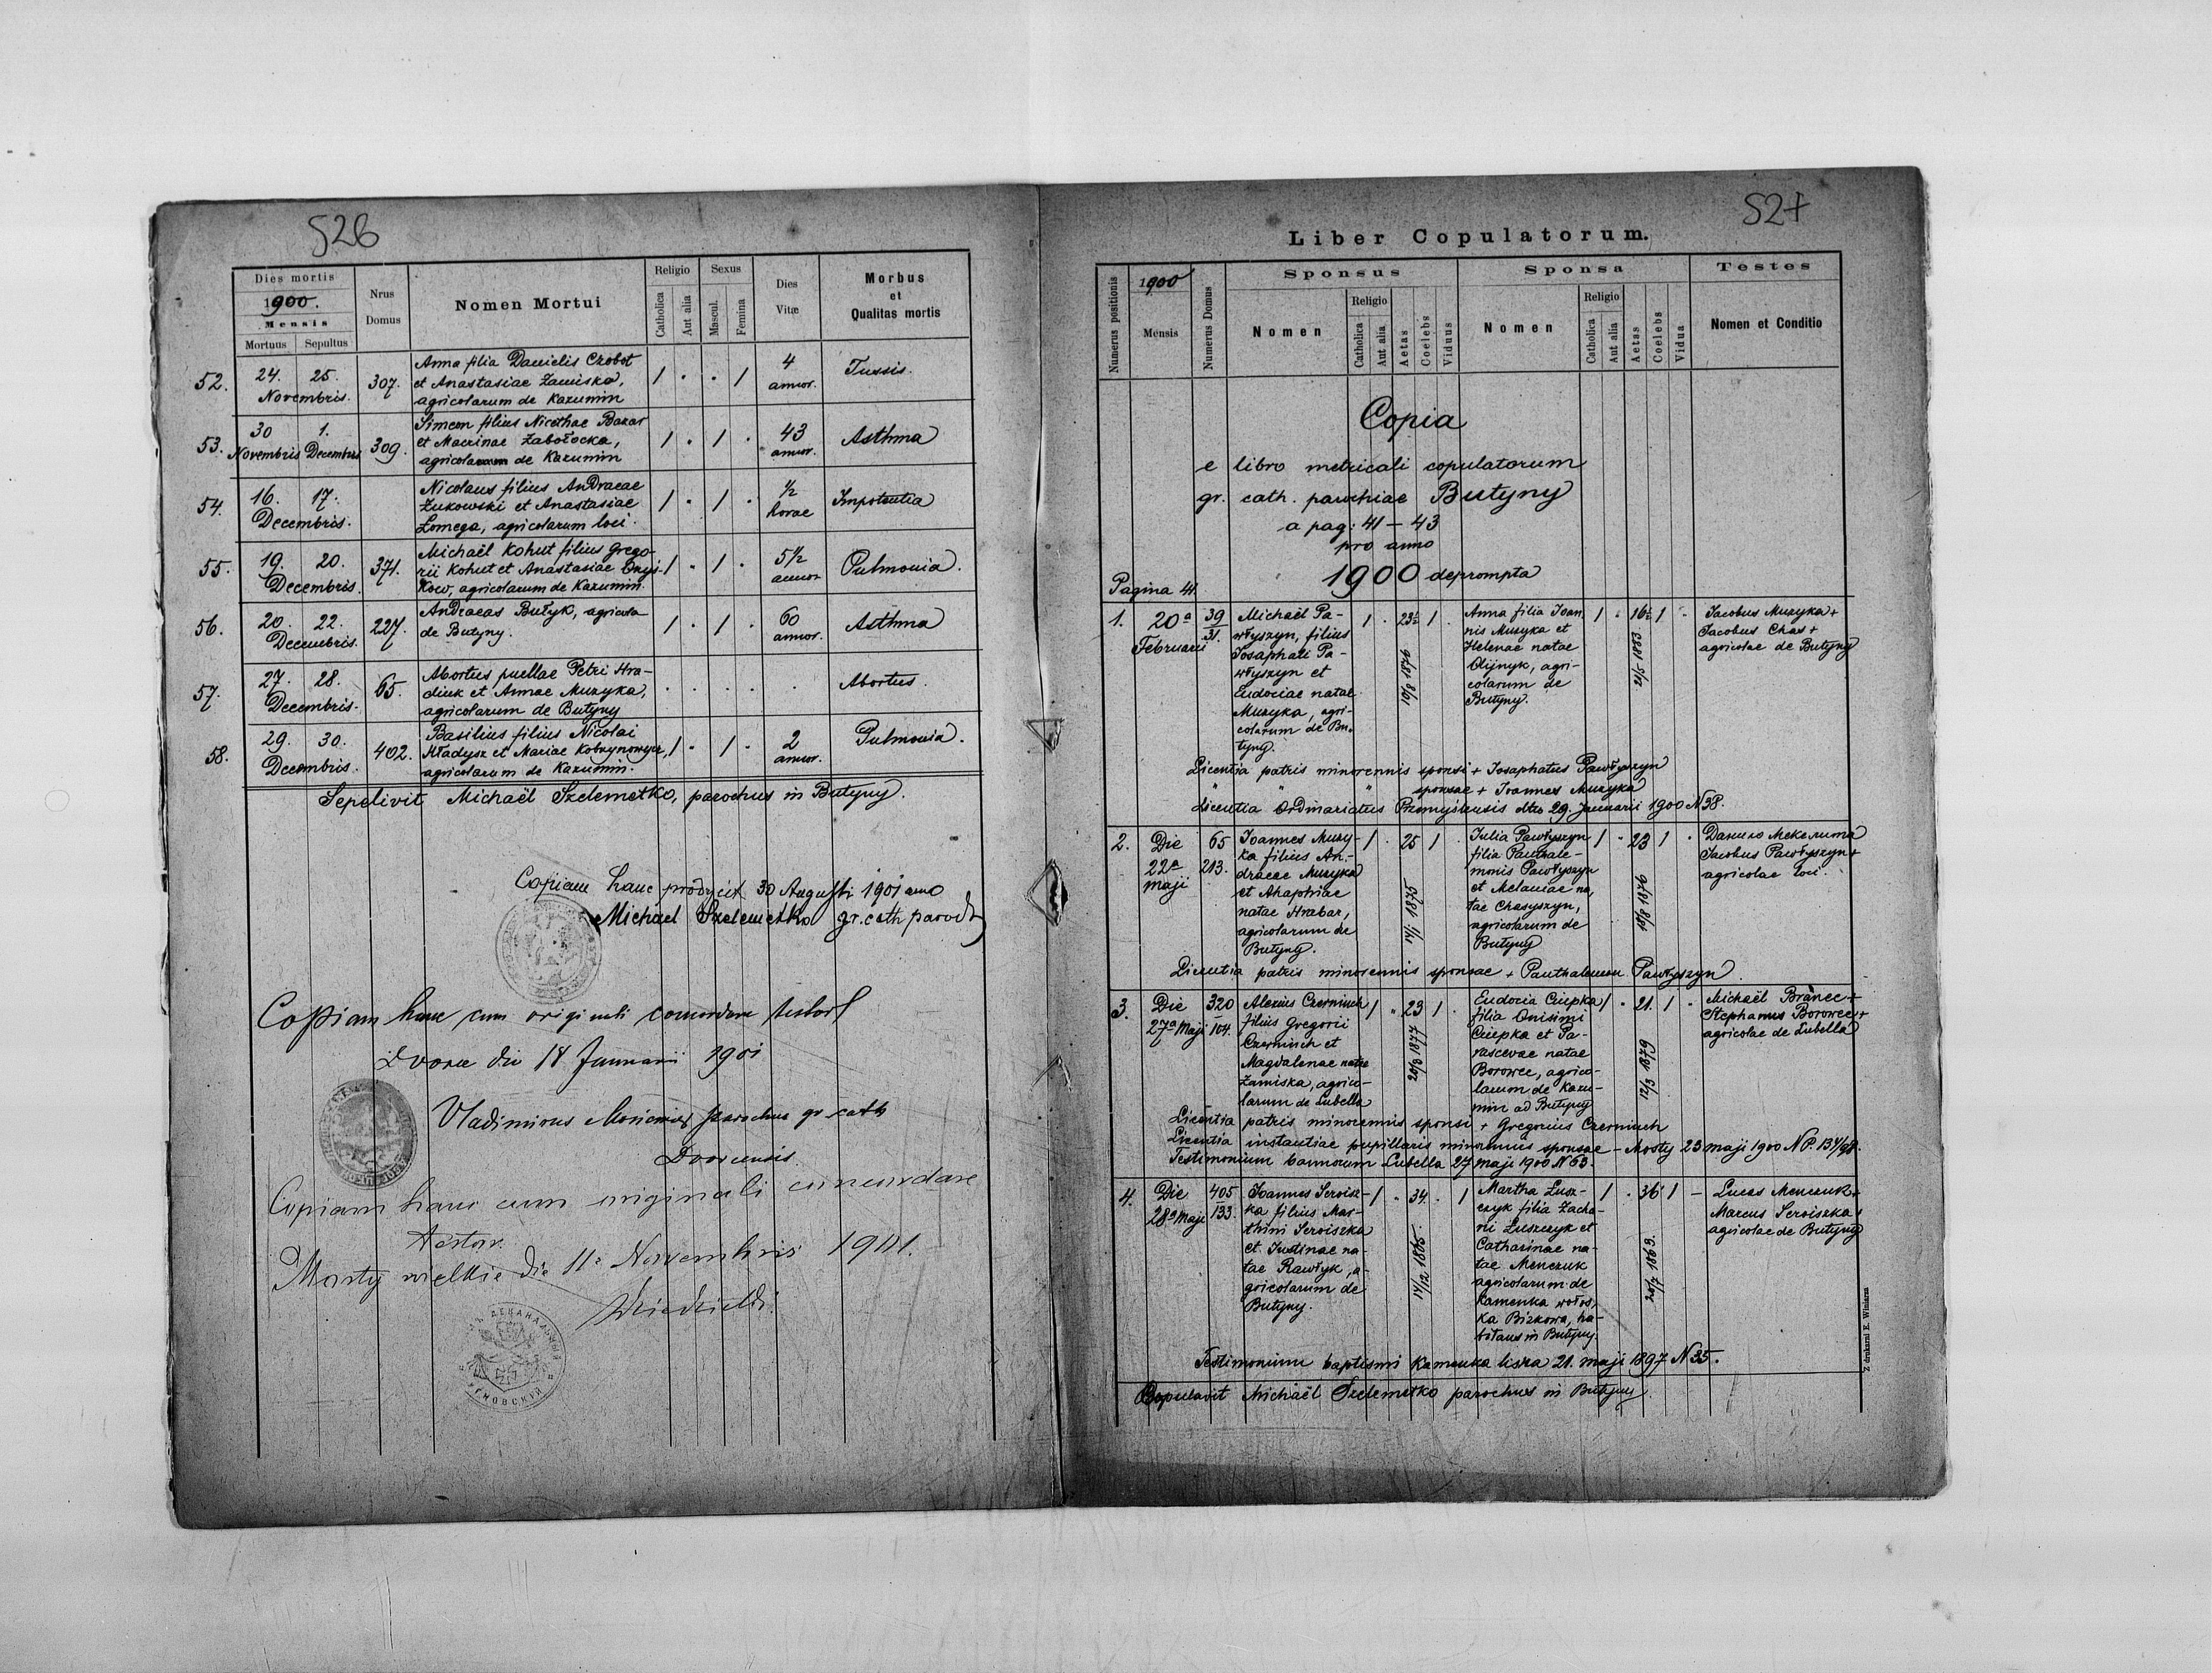 526
Dies mortis
1900.
Mensis
Mortuus Sepultus
Nrus Domus
Nomen Mortui
Religio
Catholica
Aut alia
Sexus
Mascul.
Femina
Dies Vitæ
Morbus et Qualitas mortis
52. 24. 25. 307. Anna filia Danielis Czobot 1 . . 1 4 Tussis.
Novembris. et Anastasiae Zamiska, annor.
agricolarum de Kazumin
53. 30 1. 309. Simeon filius Nicethae Bazar 1 . 1 . 43 Asthma
Novembris Decembris et Macrinae Zabołocka, annor.
de Kazumin
54. 16. 17. Nicolaus filius Andreae 1 . 1 . ½ Impotentia
Decembris. Żukowski et Anastasiae horae
Łomega, agricolarum loci.
55. 19. 20. 371. Michaël Kohut filius Grego- 1 . 1 . 5½ Pulmonia.
Decembris. rii Kohut et Anastasiae annor
agricolarum de Kazumin.
56. 20. 22. 227. Andreas Bułyk, agricola 1 . 1 . 60 Asthma
Decembris. de Butyny. annor.
57. 27. 28. 65. Abortus puellae Petri Hra- . . . . . Abortus.
Decembris. diuk et Annae Muzyka,
agricolarum de Butyny
58. 29. 30. 402. Basilius filius Nicolai 1 . 1 . 2 Pulmonia.
Decembris. Hładysz et Mariae annor.
agricolarum de Kazumin.
Sepelivit Michaël Szelemetko, parochus in Butyny.
Copiam hanc 30 Augusti 1901
Michael Szelemetko gr. cath. paroch
Copiam hanc cum originali concordare testor
Dvorce die 18 Januarii 1901
Vladimirus parochus gr. cath
Dvorcensis.
Copiam hanc cum originali concordare
testor.
Mosty wielkie die 11. Novembris 1901.
527
Liber Copulatorum.
Numerus positionis
1900
Mensis
Numerus Domus
Sponsus
Nomen
Religio
Catholica
Aut alia
Aetas
Coelebs
Viduus
Sponsa
Nomen
Religio
Catholica
Aut alia
Aetas
Coelebs
Vidua
Testes
Nomen et Conditio
Copia
e libro metricali copulatorum
gr. cath. parochiae Butyny
a pag: 41 – 43
pro anno
1900 deprompta
Pagina 41.
1. 20a 39 Michaël Pa- 1 . 23½ 1 . Anna filia Joan- 1 . 16½ 1 . Jacobus Muzyka +
Februarii 31. włyszyn, filius nis Muzyka et Jacobus Chas +
Josaphati Pa- Helenae natae agricolae de Butyny
włyszyn et Olijnyk, agri-
Eudociae natae colarum de
Muzyka, agri- Butyny.
colarum de Bu-
tyny.
16/8 1876
5/12 1883
Licentia patris minorennis sponsi + Josaphatus Pawłyszyn
" " " sponsae + Joannes Muzyka
Licentia Ordinariatus Przemyslensis dtto 29. Januarii 1900 N 38.
2. Die 65 Joannes Muzy- 1 . 25 1 . Julia Pawłyszyn 1 . 23 1 . Данило Мекелита
22a 213. ka filius An- filia Panthale- Jacobus Pawłyszyn +
maji dreae Muzyka monis Pawłyszyn agricolae loci.
et Ahaphiae et Melaniae na-
natae Hrabar, tae Chasyszyn,
agricolarum de agricolarum de
Butyny. Butyny
14/1 1875
18/8 1876
Licentia patris minorennis sponsae + Panthalemon Pawłyszyn.
3. Die 320 Alexius Czerniuch 1 . 23 1 . Eudocia Ciepka 1 . 21. 1 . Michaël Branec +
27a Maji 104. filius Gregorii filia Onisimi Stephanus Borowec +
Czerniuch et Ciepka et Pa- agricolae de Lubella
Magdalenae natae rascevae natae
Zamiska, agrico- Borowec, agrico-
larum de Lubella larum de Kazu-
min ad Butyny
20/3 1877
12/3 1879
Licentia patris minorennis sponsi + Gregorius Czerniuch
Licentia instantiae pupillaris minorennis sponsae – Mosty 23 maji 1900 N P. 134/98.
Testimonium bannorum Lubella 27 maji 1900 N 63.
4. Die 405 Joannes Seroisz- 1 . 34. . 1 Martha Łusz- 1 . 36 1 – Lucas Menczuk +
28a Maji 133. ka filius Mar- czyk filia Zacha- Marcus Seroiszka +
thini Seroiszka rii Łuszczyk et agricolae de Butyny
et Justinae na- Catharinae na-
tae Rawłyk, a- tae Menczuk
gricolarum de agricolarum de
Butyny. Kamenka wołos-
ka Bizkowa, ha-
bitans in Butyny.
14/12 1865.
20/7 1863.
Testimonium baptismi Kamenka 21. maji 1897 N 35.
Copulavit Michaël Szelemetko parochus in Butyny.
Z drukarni E. Winiarza